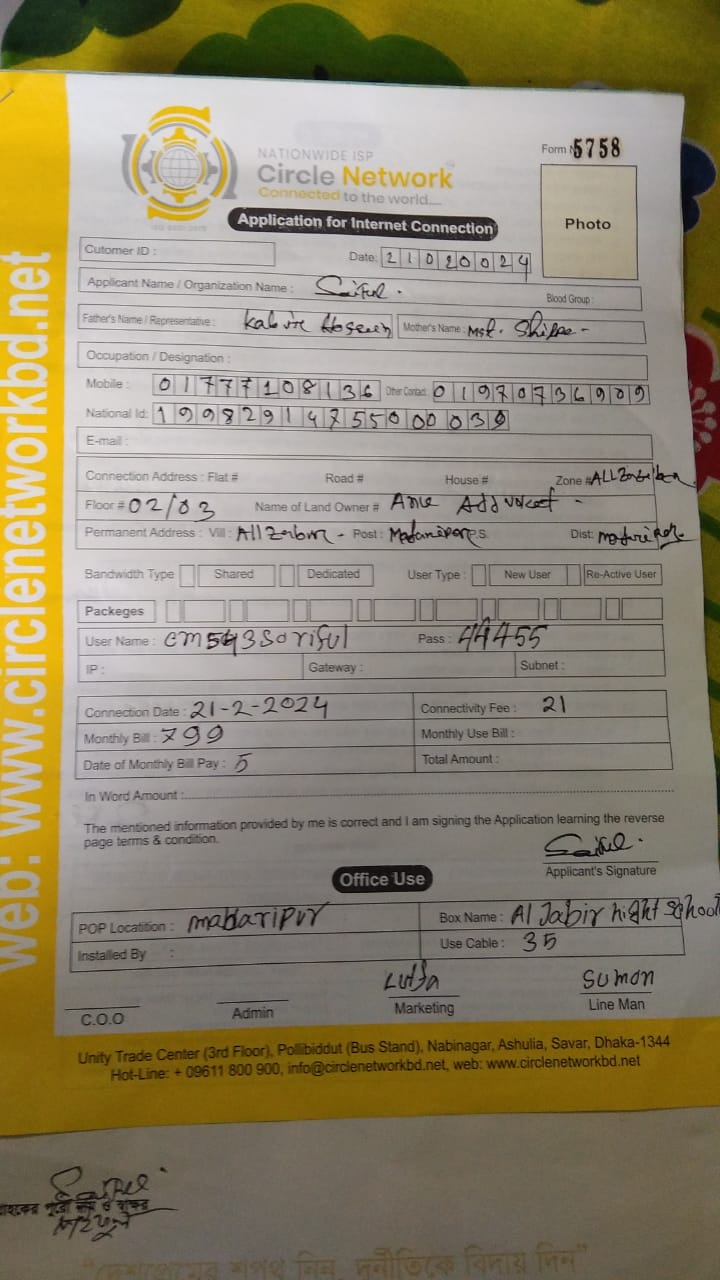 NATIONWIDE ISP
Circle Network
Connected to the world....
Form N 5758
Application for Internet Connection
Photo
Cutomer ID :
Date: 21020024
Applicant Name / Organization Name : Saiful.
Blood Group :
Father's Name / Representative : Kabir Hoseen Mother's Name : Mst.
Occupation / Designation :
Mobile : 01777108136 Other Contact: 01970736909
National Id: 19982914755000030
E-mail :
Connection Address : Flat # Road # House # Zone #
Floor # 02/03 Name of Land Owner #
Permanent Address : Vill : Post : P.S. Dist:
Bandwidth Type Shared Dedicated User Type : New User Re-Active User
Packeges
User Name : cm543soriful Pass : 44455
IP : Gateway : Subnet :
Connection Date : 21-2-2024 Connectivity Fee : 21
Monthly Bill : 799 Monthly Use Bill :
Date of Monthly Bill Pay : 5 Total Amount :
In Word Amount :
The mentioned information provided by me is correct and I am signing the Application learning the reverse
page terms & condition.
Applicant's Signature
Office Use
POP Locatition : madaripur Box Name : Al Jabir hight school
Installed By : Use Cable : 35
Lutfa Sumon
C.O.O Admin Marketing Line Man
Unity Trade Center (3rd Floor), Pollibiddut (Bus Stand), Nabinagar, Ashulia, Savar, Dhaka-1344
Hot-Line: + 09611 800 900, info@circlenetworkbd.net, web: www.circlenetworkbd.net
web: www.circlenetworkbd.net
"দেশপ্রেমের শপথ নিন, দুর্নীতিকে বিদায় দিন"